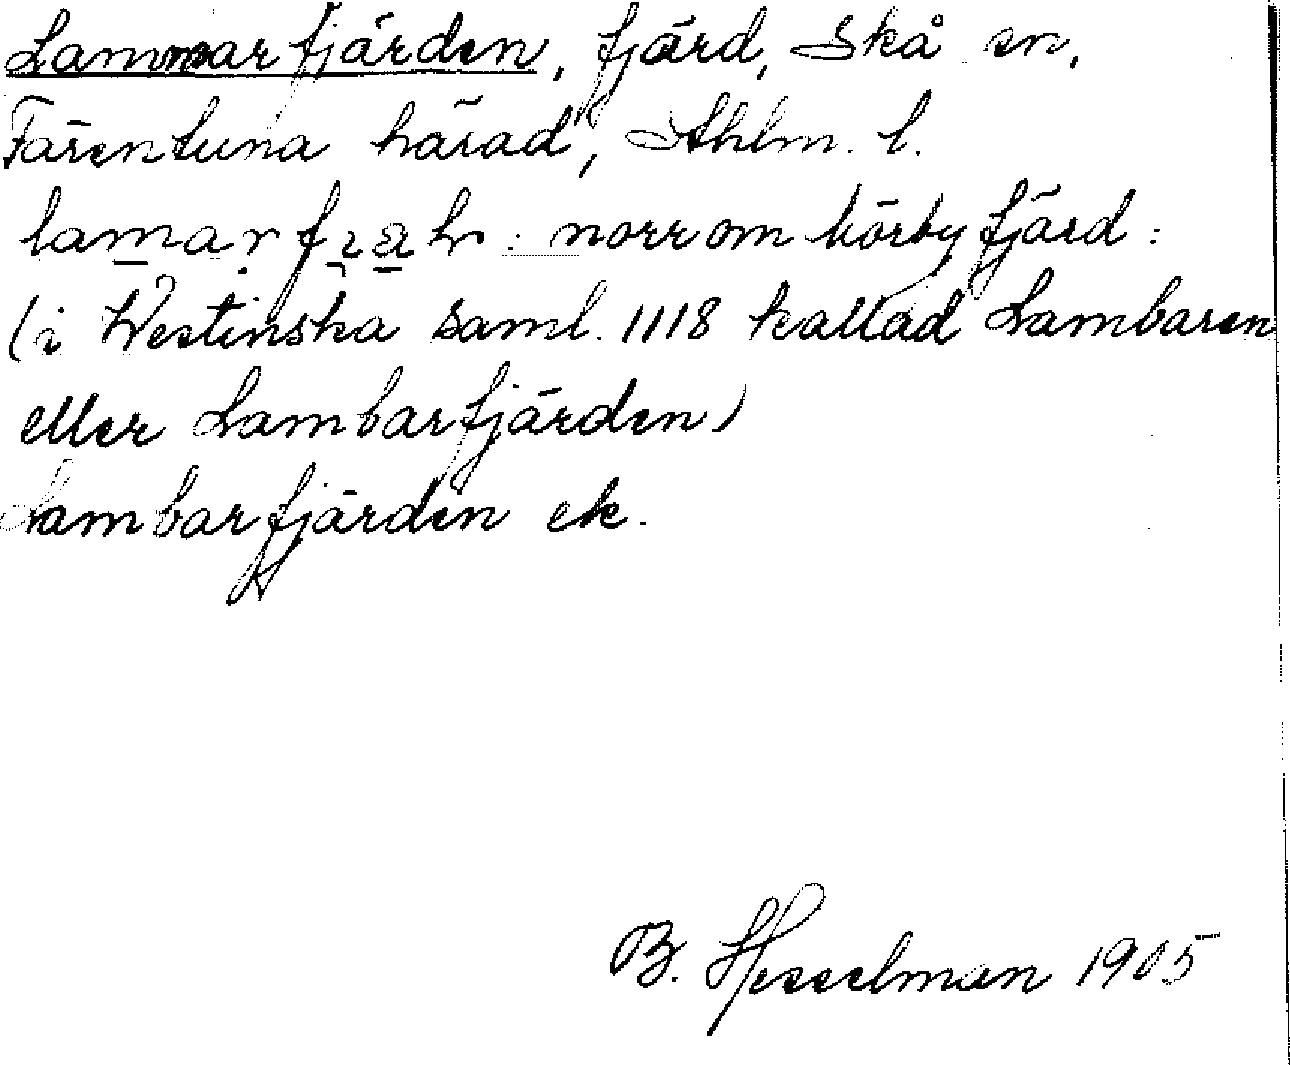 Lammarfjärden, fjärd, Skå sn,
Färentuna härad, Sthlm. l.
norr om Körby fjärd :
(i Westinska saml. 1118 kallad Lambaren
eller Lambarfjärden)
Lambarfjärden ek.
B. Hesselman 1905